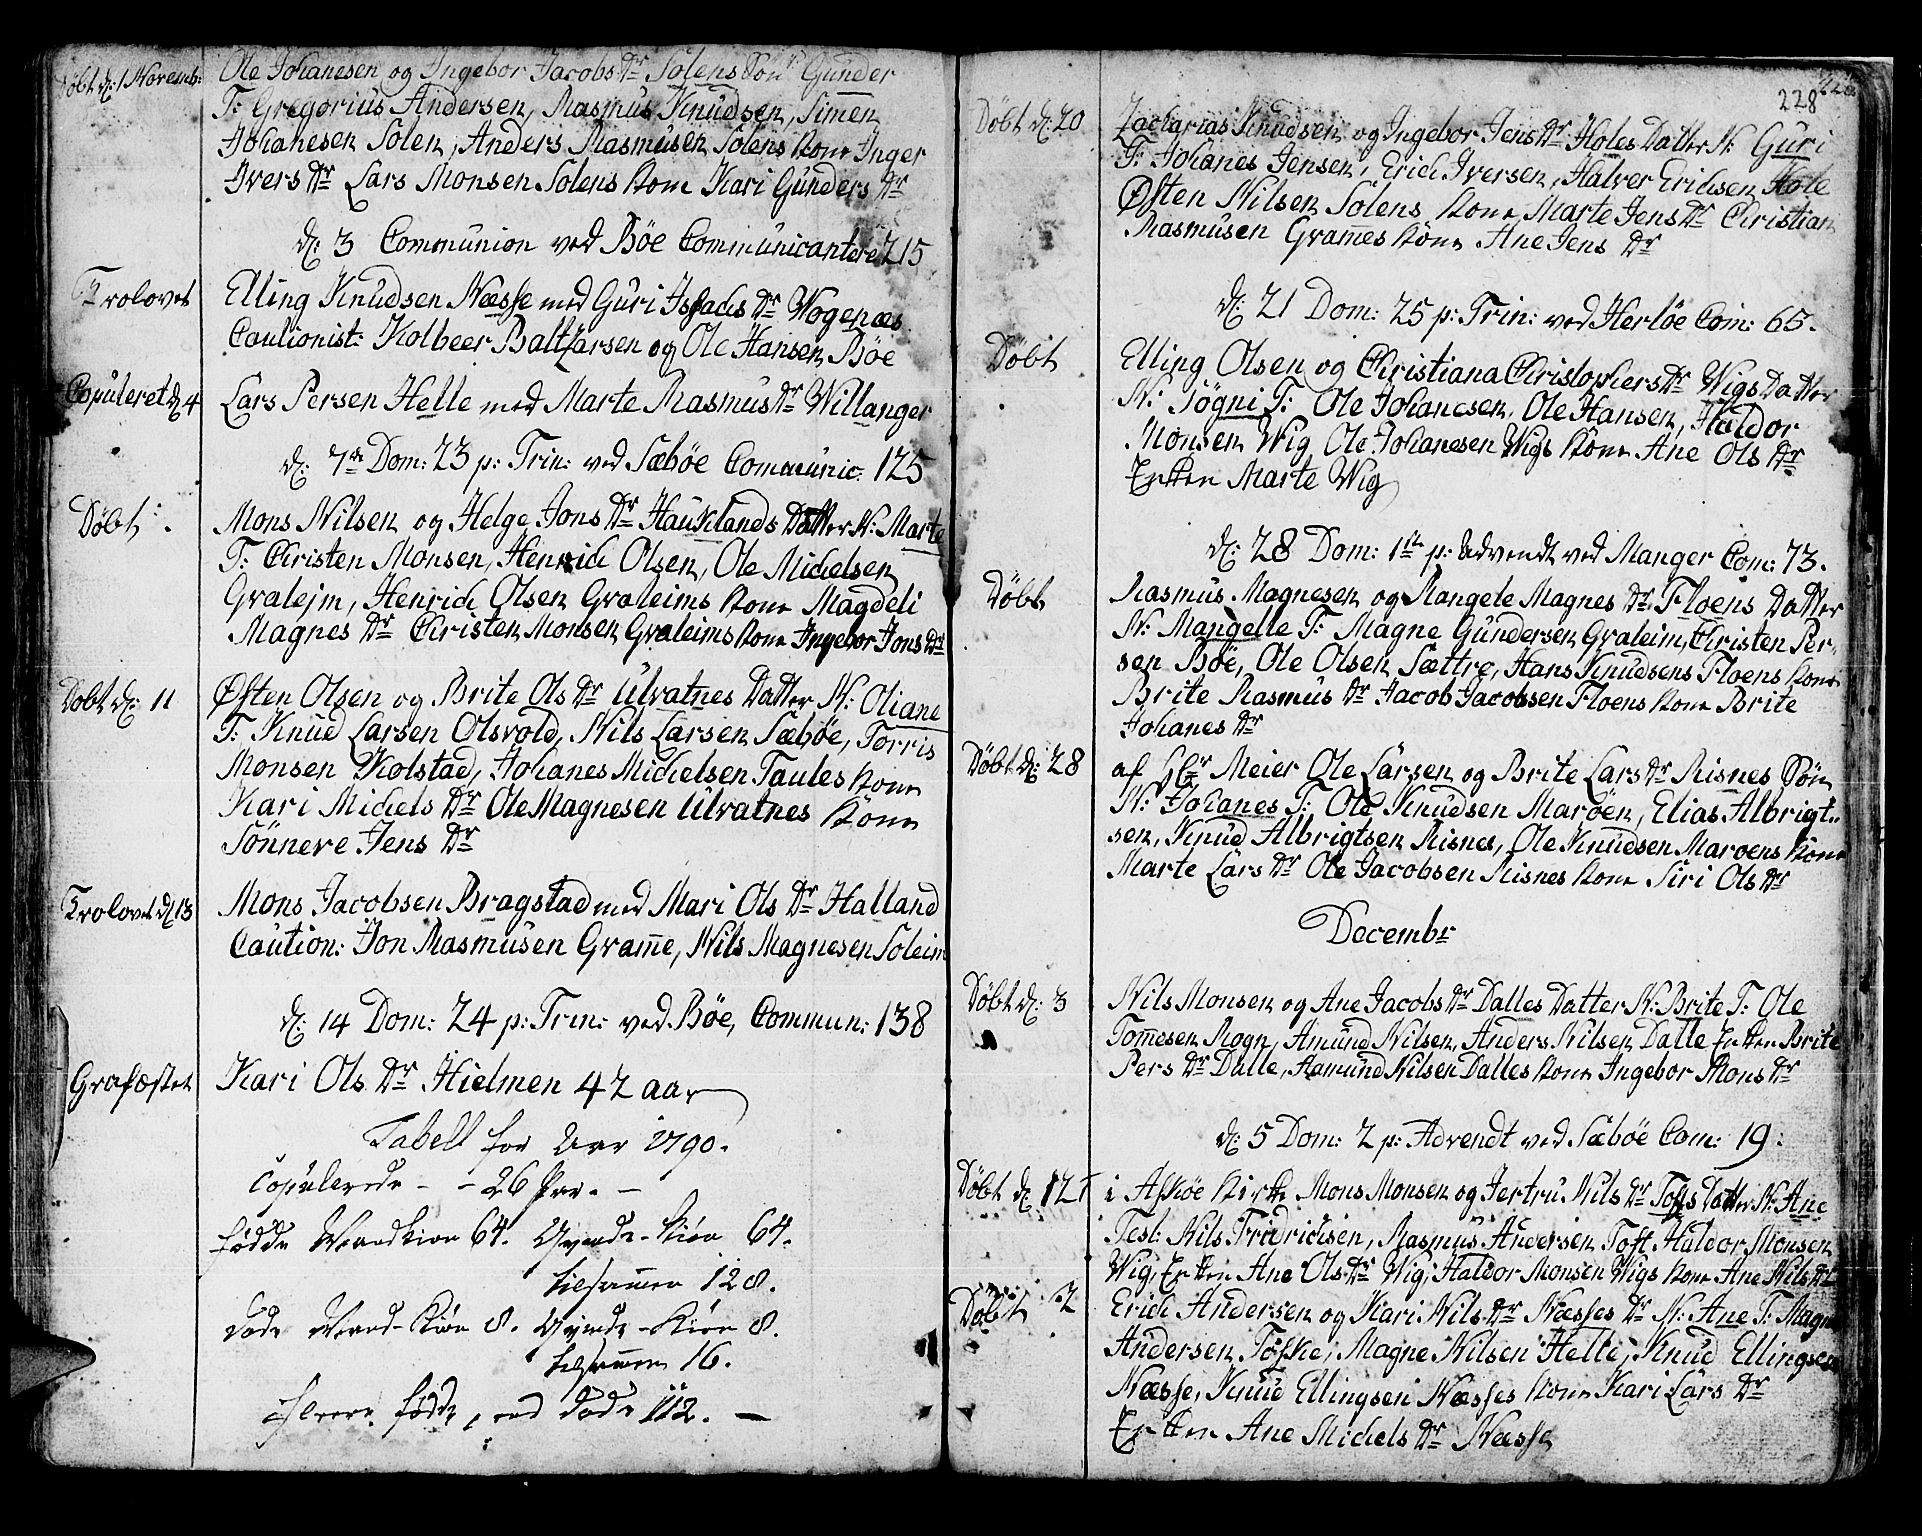 Döbt d: 1 Novemb: Ole Johanesen og Ingebor Jacobs Dr Solens Sön Gunder
T: Gregorius Andersen, Rasmus Knudsen, Simen
Johanesen Solen, Anders Rasmusen Solens Kone Inger
Ivers Dr Lars Monsen Solens Kone Kari Gunders Dr
d: 3 Communion ved Böe Communicantere 215
Trolovet Elling Knudsen Næsse med Guri Issachs Dr Wogenæs
Cautionist: Kolbeer Baltzarsen og Ole Hansen Böe
Copuleret d 4 Lars Persen Helle med Marte Rasmus Dr Willanger
d: 7de Dom: 23 p: Trin: ved Sæböe Communic: 125
Döbt: Mons Nilsen og Helge Jons Dr Hauklands Datter N: Marte
T: Christen Monsen, Henrich Olsen, Ole Michelsen
Gralejm, Henrich Olsen Graleims Kone Magdeli
Magnes Dr Christen Monsen Graleims Kone Ingebor Jons Dr
Döbt d: 11 Østen Olsen og Brite Ols Dr Ulvatnes Datter N: Oliane
T: Knud Larsen Olsvold, Nils Larsen Sæböe, Torris
Monsen Kolstad, Johanes Michelsen Taules Kone
Kari Michels Dr Ole Magnesen Ulvatnes Kone
Sönneve Jens Dr
Trolovet d 13 Mons Jacobsen Bragstad med Mari Ols Dr Halland
Caution: Jon Rasmusen Grame, Nils Magnesen Soleim
d: 14 Dom: 24 p: Trin: ved Böe, Commun: 138
Grafæstet Kari Ols Dr Hielmen 42 aar
Tabell for Aar 1790.
Copulerede - - 26 Par. -
födde Mandkiön 64. Qvinde-Kiön 64.
tilsamen 128.
döde Mand-Kiön 8. Qvinde-Kiön 8.
tilsamen 16.
fleere födde, end döde 112. -
228
Döbt d: 20 Zacharias Knudsen og Ingebor Jens Dr Holes Datter N: Guri
T: Johanes Jensen, Erich Iversen, Halver Erichsen Hole
Østen Nilsen Solens Kone Marte Jens Dr Christian
Rasmusen Grames Kone Ane Jens Dr
d: 21 Dom: 25 p: Trin: ved Herlöe Com: 65.
Döbt Elling Olsen og Christiana Christophers Dr Wigs Datter
N: Sögni T: Ole Johanesen, Ole Hansen, Haldor
Monsen Wig Ole Johanesen Wigs Kone Ane Ols Dr
Enken Marte Wig
d: 28 Dom: 1ste p: Advendt ved Manger Com: 73.
Döbt Rasmus Magnesen og Mangele Magnes Dr Floens Datter
N: Mangelle T: Magne Gundersen Graleim, Christen Per-
sen Böe, Ole Olsen Sættre, Hans Knudsens Floens Kone
Brite Rasmus Dr Jacob Jacobsen Floens Kone Brite
Johanes Dr
Döbt d: 28 af Hr Meier Ole Larsen og Brite Lars Dr Risnes Sön
N: Johanes T: Ole Knudsen Maröen, Elias Albrigt-
sen, Knud Albrigtsen Risnes, Ole Knudsen Maroens Kone
Marte Lars Dr Ole Jacobsen Risnes Kone Siri Ols Dr
Decembr
Döbt d: 3 Nils Monsen og Ane Jacobs Dr Dalles Datter N: Brite T: Ole
Tomesen Rogn, Amund Nilsen, Anders Nilsen Dalle Enken Brite
Pers Dr Dalle, Aamund Nilsen Dalles Kone Ingebor Mons Dr
d: 5 Dom: 2 p: Advendt ved Sæböe Com: 19:
Döbt d: 12 i Asköe Kirke Mons Monsen og Jertru Nils Dr Tofts Datter N: Ane
Test: Nils Fridrichsen, Rasmus Andersen Toft Haldor Monsen
Wig, Enken Ane Ols Dr Wig, Haldor Monsen Wigs Kone Ane Nils Dr
Döbt 2 Erich Andersen og Kari Nils Dr Næsses Dr N: Ane T: Magne
Andersen Toske, Magne Nilsen Helle, Knud Ellingsen
Næsse, Knud Ellingsen Næsses Kone Kari Lars Dr
Enken Ane Michels Dr Næsse